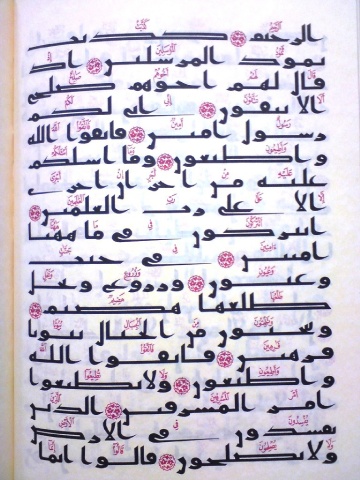 الرحيم ۝ كذبت
ثمود المرسلين ۝ اذ
قال لهم اخوهم صلح
الا تتقون ۝ اني لكم
رسول امين ۝ فاتقوا الله
واطيعون ۝ وما اسلكم
عليه من اجر ان اجري
الا على رب العلمين ۝
اتتركون في ما ههنا
امنين ۝ في جنت
وعيون ۝ وزروع ونخل
طلعها هضيم ۝
وتنحتون من الجبال بيوتا
فرهين ۝ فاتقوا الله
واطيعون ۝ ولا تطيعوا
امر المسرفين ۝ الذين
يفسدون في الارض
ولا يصلحون ۝ قالوا انما